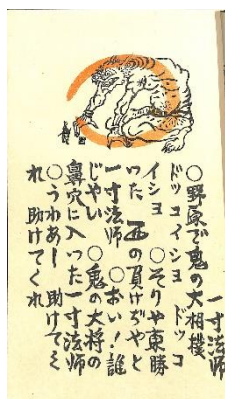 一寸法師
○野原で鬼の大相撲
ドッコイショ ドッコ
イショ ○そりや東勝
った 西の負けぢやと
一寸法師 ○おい!誰
じやい ○鬼の大将の
鼻穴に入った一寸法師
○うわあー 助けてく
れ 助けてくれ